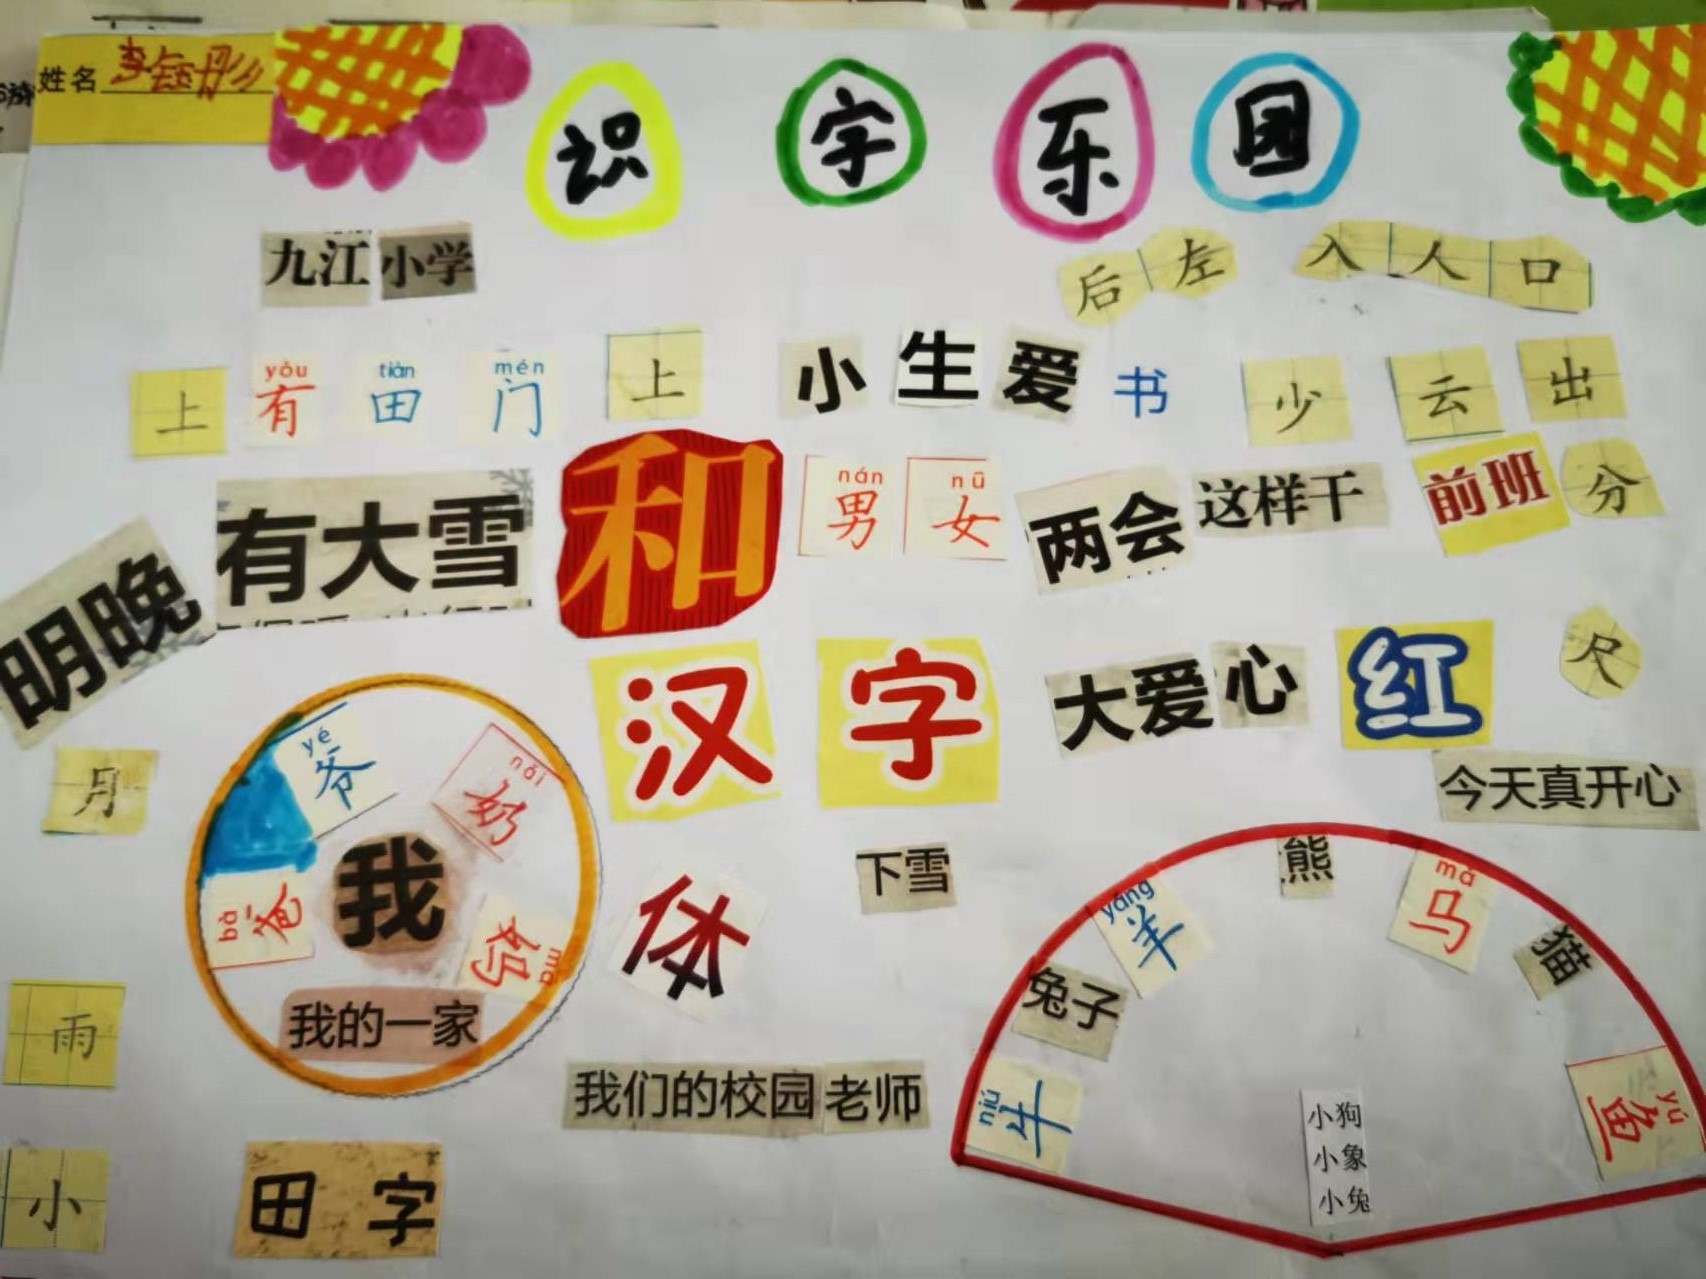 姓名 李钰彤
识字乐园
九江小学
后左 入人口
上 yǒu 有 tián 田 mén 门 上 小生爱书 少 云 出
有大雪 和 nán 男 nǚ 女 两会 这样干 前班 分
明晚
汉字 大爱心 红 尺
月
今天真开心
yé 爷 nǎi 奶
我
bà 爸 mā 妈
我的一家
体
下雪
熊
yáng 羊 mǎ 马
兔子 猫
niú 牛 yú 鱼
雨
我们的校园老师
小狗
小象
小兔
小 田字